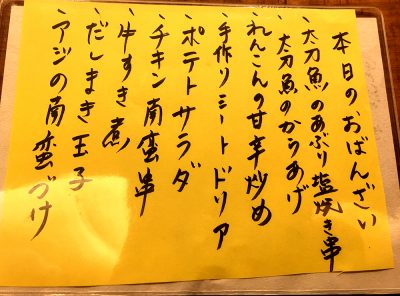 本日のおばんざい
・太刀魚のあぶり塩焼き串
・太刀魚のからあげ
・れんこんの甘辛炒め
・手作りミートドリア
・ポテトサラダ
・チキン南蛮串
・牛すき煮
・だしまき玉子
・アジの南蛮づけ